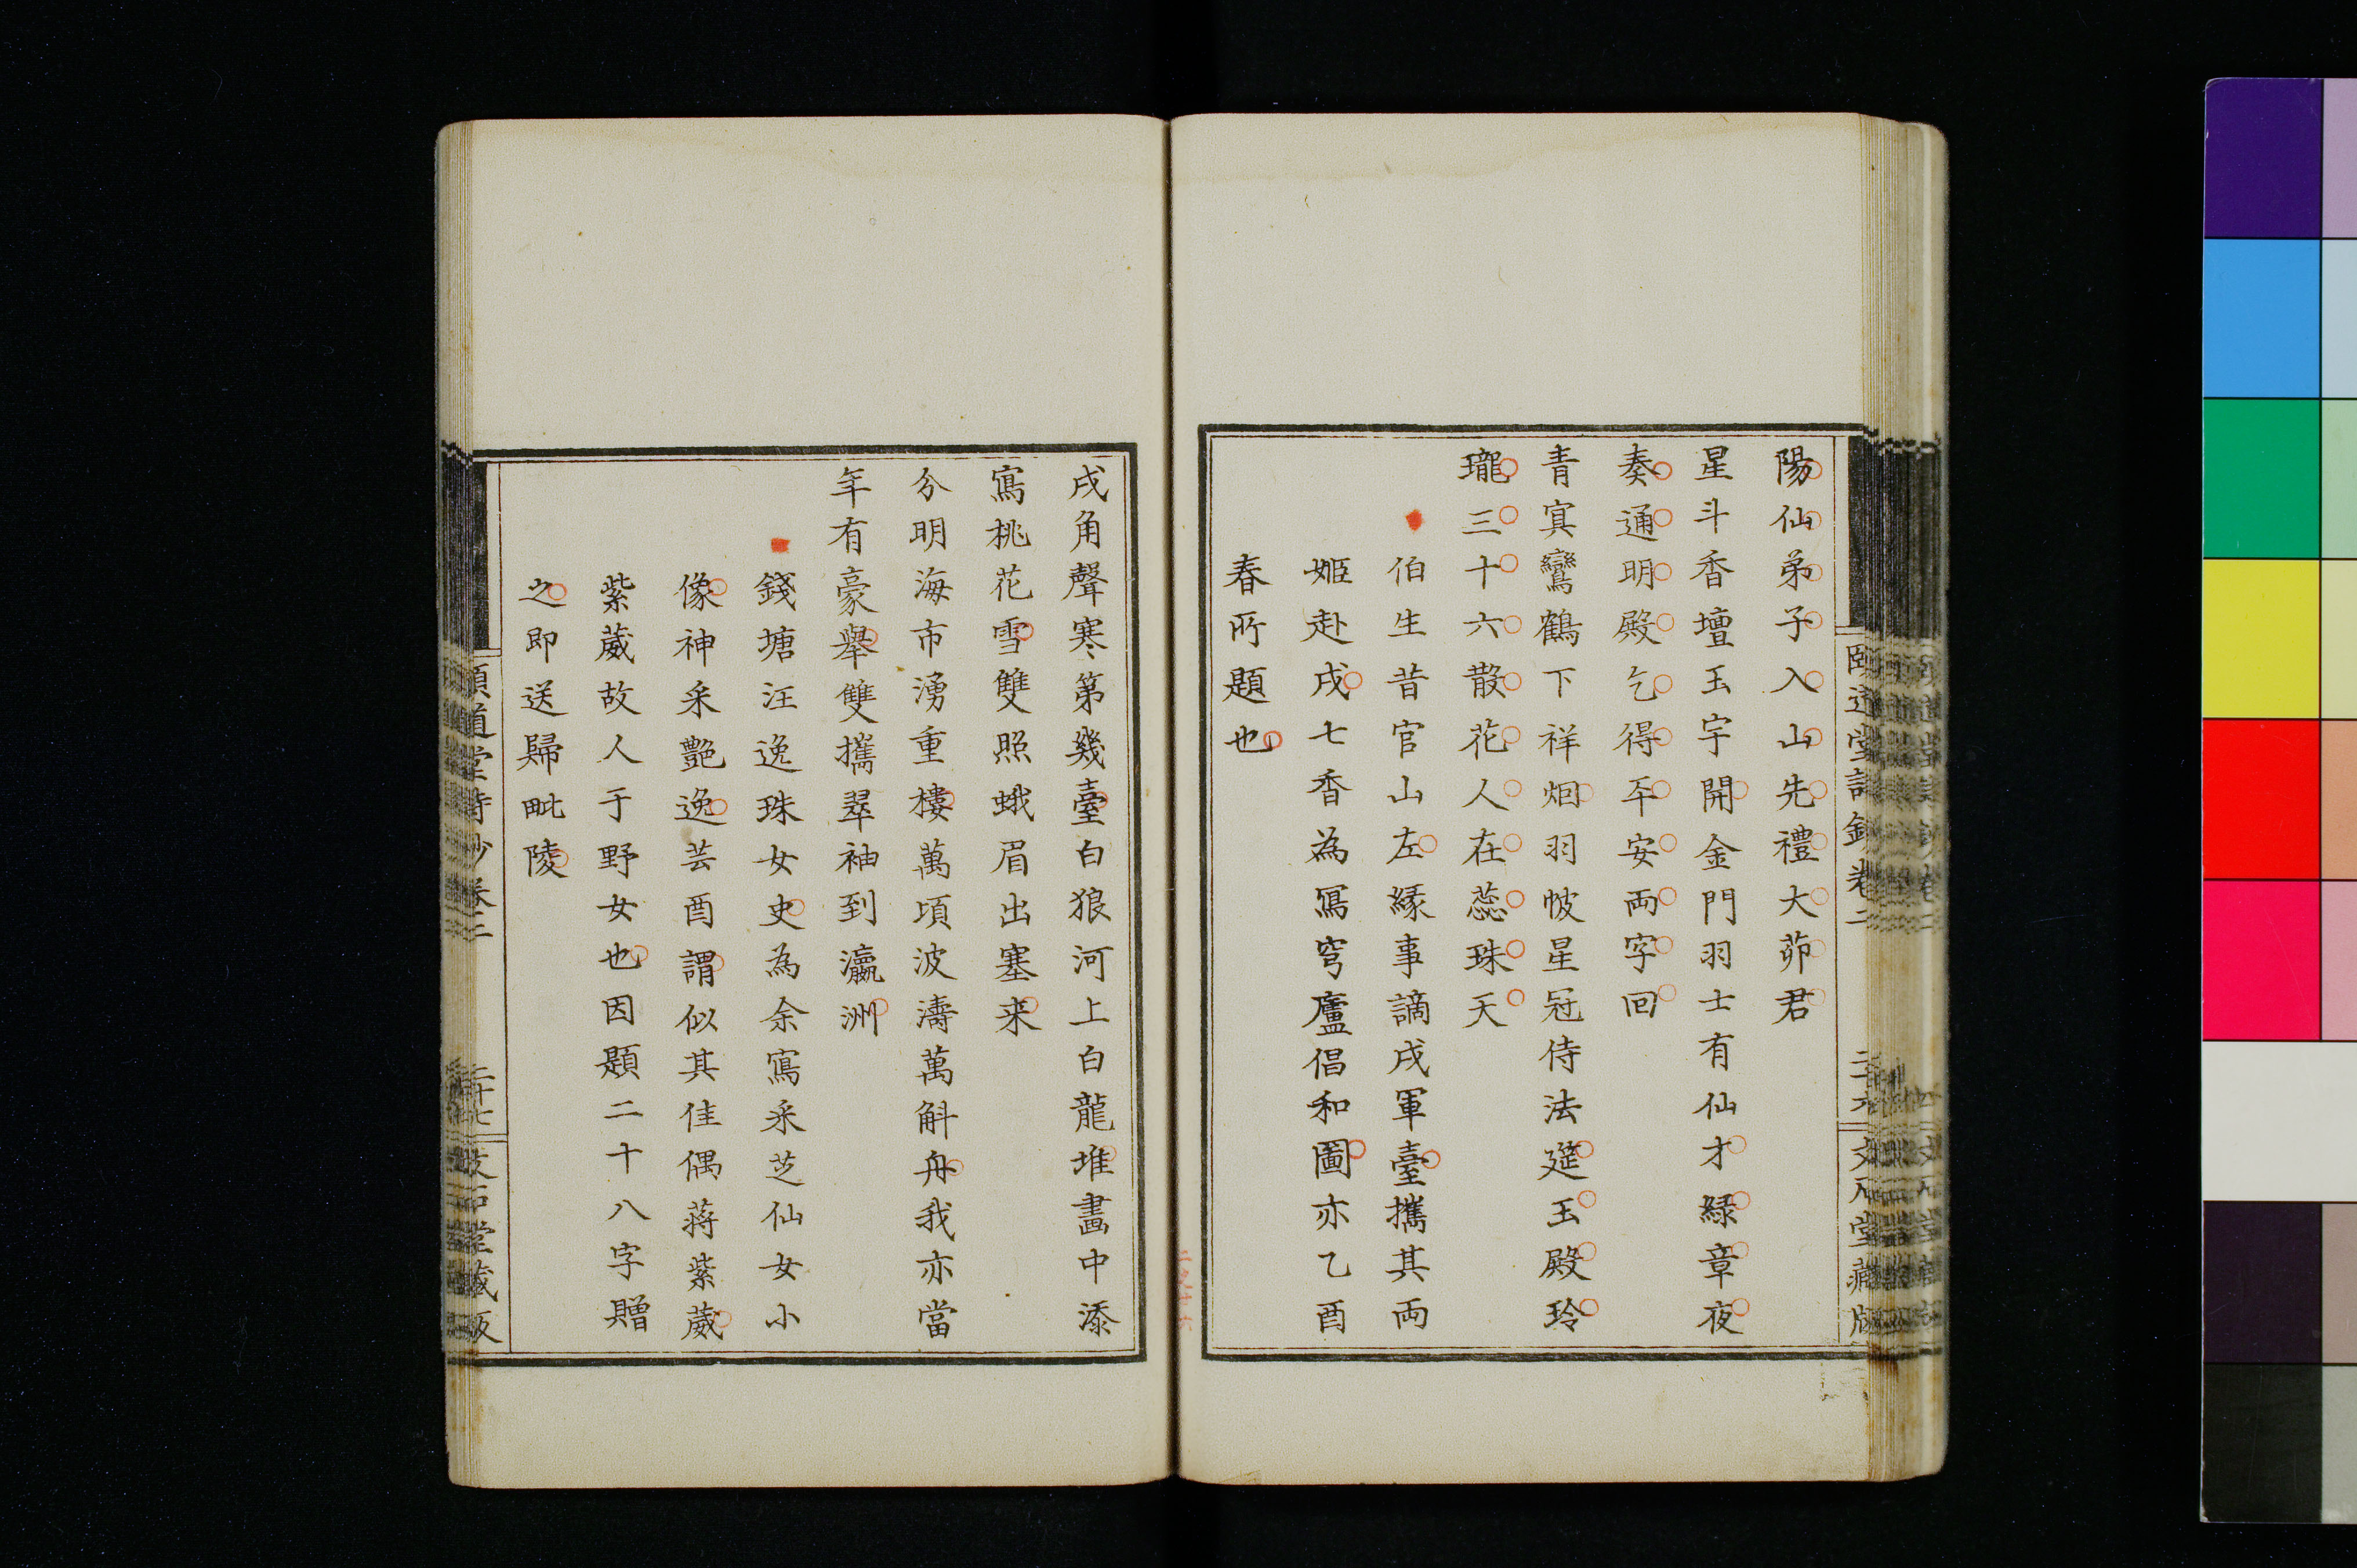 陽仙弟子入山先禮大茆君
星斗香壇玉宇開金門羽士有仙才緑章夜
奏通明殿乞得平安両字回
青冥鸞鶴下祥烟羽帔星冠侍法筵玉殿玲
瓏三十六散花人在蕊珠天
伯生昔官山左縁事謫戍軍臺攜其両
姬赴戍七香為寫穹廬倡和圖亦乙酉
春所題也
頤道堂詩鈔卷二
二十六
文石堂藏版
戍角聲寒第幾臺白狼河上白龍堆畫中添
寫桃花雪雙照蛾眉出塞来
分明海市湧重樓萬頃波濤萬斛舟我亦當
年有豪舉雙攜翠袖到瀛洲
錢塘汪逸珠女史為余寫采芝仙女小
像神采艷逸芸酉謂似其佳偶蔣紫葳
紫葳故人于野女也因題二十八字贈
之即送歸毗陵
頤道堂詩鈔卷二
二十七
文石堂藏版